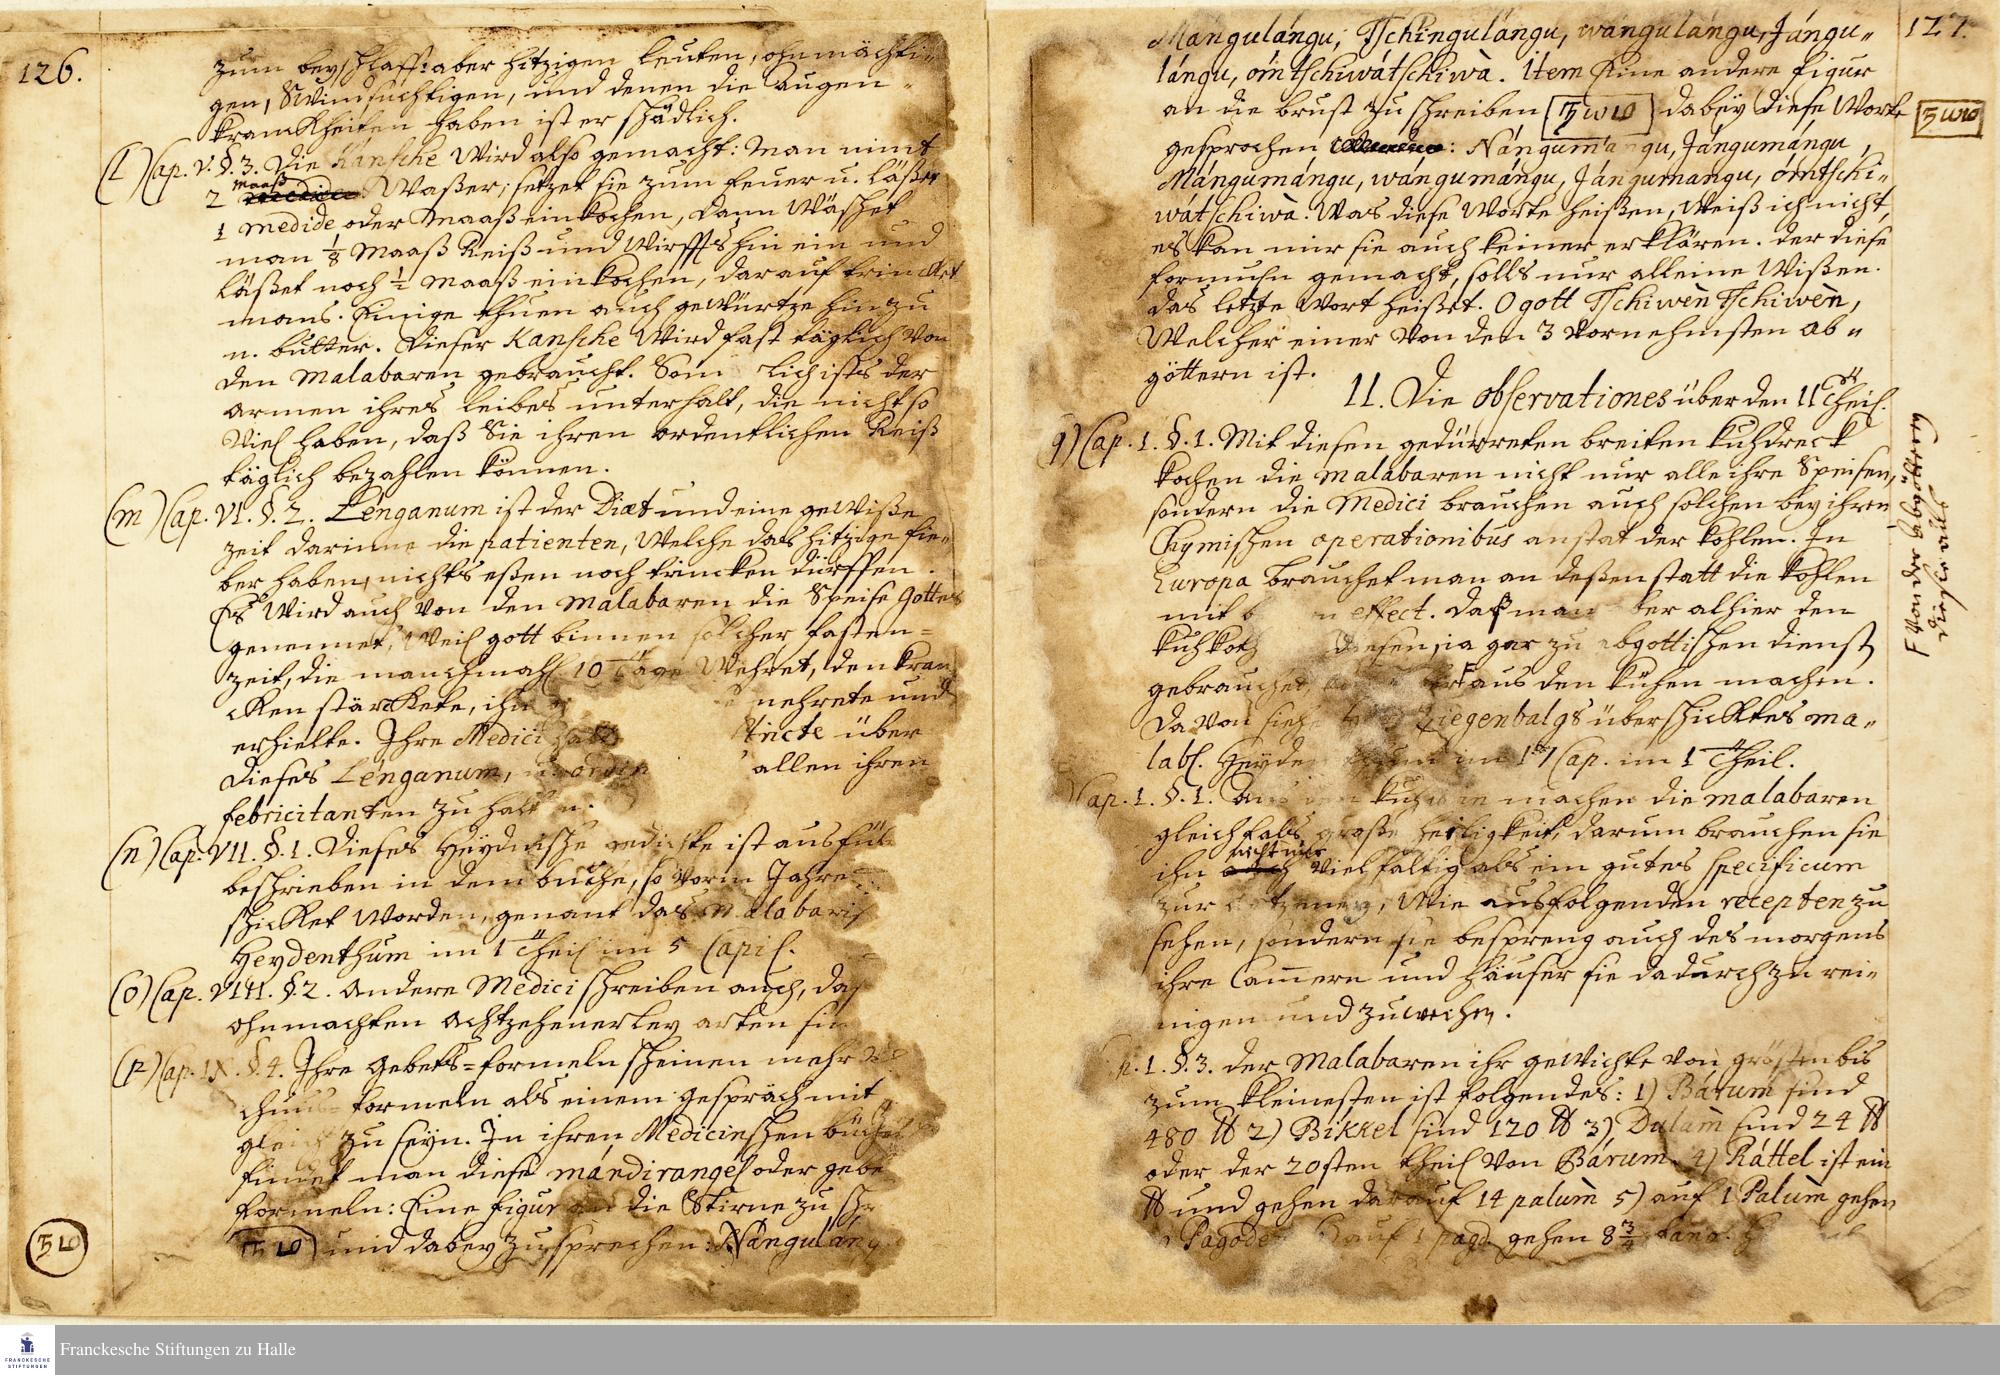 126.
zum beyschlaff: aber hitzigen leuten, ohnmächti-
gen, Swindsüchtigen, und denen die Augen-
kranckheiten haben ist er schädlich.
(l) Cap. V. §. 3. Die Kánsche wird also gemacht: Man nimt
2 maaß Waßer; setzet sie zum feuer u. läßet
1 medide oder Maaß einkochen, dann wäschet
man 1/8 Maaß Reiß und wirffts hin ein und
läßet noch 1/2 Maaß einkochen, darauf trincket
mans. Einige thuen auch gewürtze hinzu
n. butter. Dieser Kansche wird fast täglich von
den Malabaren gebraucht. lich ists der
armen ihres leibes unterhalt, die nicht so
viel haben, daß Sie ihren ordentlichen Reiß
täglich bezahlen können.
(m) Cap. VI. §. 2. Lénganum ist der Diæt und eine gewiße
zeit darinne die patienten, welche das hitzige fie-
ber haben, nichts eßen noch trincken dürffen.
Es wird auch von den Malabaren die Speise Gottes
genennet, weil gott binnen solcher fasten-
zeit, die manchmahl 10 Tage wehret, den kran-
cken stärckete, ihn nehrete und
erhielte. Ihre Medici stricte über
dieses Lénganum, allen ihren
febricitanten zu halten.
(n) Cap. VII. §. 1. Dieses Heydnische gedichte ist ausfü
beschrieben in dem buche, so vorm Jahre
schicket worden, genant das Malabaris
Heydenthum im 1 Theil im 5 Capil.
(o) Cap. VIII. §. 2. Andere Medici schreiben auch, daß
ohnmachten achtzehenerley arten sin
(p) Cap. IX. §. 4. Ihre Gebets-formeln scheinen mehr
formeln als einem gespräch mit
zu seyn. In ihren Medicinschen büche
findet man diese mándirangel oder gebe
formeln: Eine figur an die Stirne zu sch
und dabey zu sprechen: Nángulán
127.
Mángulángu, Tschingulángu, wángulángu, Jángu-
lángu, ómtschiwátschiwà. Item Eine andere figur
an die brust zu schreiben dabey diese worte
gesprochen : Nángumángu, Jángumángu,
Mángumángu, wángumángu, Jángumangu, ómtschi-
wátschiwà. Was diese worte heißen, weiß ich nicht,
es kan mir sie auch keiner erklären. der diese
formuln gemacht, solls nur alleine wißen.
das letzte wort heißet. O gott Tschiwèn Tschiwèn,
Welcher einer von den 3 vornehmsten ab-
göttern ist.
II. Die Observationes über den II Theil.
q) Cap. 1. §. 1. Mit diesen gedürreten breiten kuhdreck
kochen die Malabaren nicht nur alle ihre Speisen,
sondern die Medici brauchen auch solchen bey ihren
Chymischen operationibus anstat der kohlen. In
Europa brauchet man an deßen statt die kohlen
mit effect. Daß man aber alhier den
kuhkoth ja gar zu abgottischen dienst
gebrauchet, aus den kühen machen.
Davon siehe Ziegenbalgs überschicktes ma-
lab. Heyden im Cap. im 1 Theil.
F Von der abgötterey
die sie auch
Cap. 1. §. 1. machen die Malabaren
gleichfals große heiligkeit, darum brauchen sie
ihn nicht nur vielfaltig als ein gutes specificum
zur , wie aus folgenden recepten zu
sehen, sondern sie bespreng auch des morgens
ihre Camern und häuser sie dadurch zu rei-
nigen und zu
1. §. 3. der Malabaren ihr gewichte von grösten bis
zum kleinesten ist folgendes: 1) Bárum sind
480 ℔ 2) Bikkel sind 120 ℔ 3) Dulàm sind 24 ℔
oder der 20sten theil von Bárum. 4) Ráttel ist ein
℔ und gehen darauf 14 palùm 5) auf 1 Palùm gehen
Pagode auf 1 pagd. gehen 8 3/4
FRANCKESCHE
STIFTUNGEN
Franckesche Stiftungen zu Halle